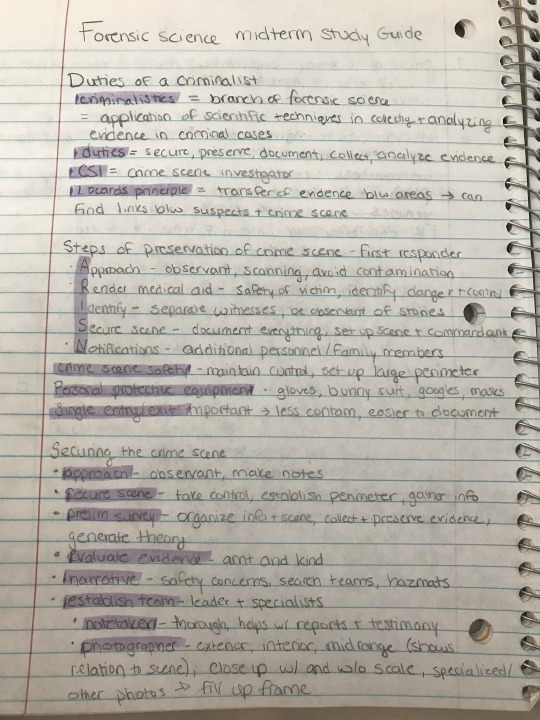 Forensic science midterm Study Guide
Duties of a criminalist
criminalistics = branch of forensic science
= application of scientific techniques in collecting + analyzing
evidence in criminal cases
duties = secure, preserve, document, collect, analyze evidence
CSI = crime scene investigator
Locards principle = transfer of evidence b/w areas → can
find links b/w suspects + crime scene
Steps of preservation of crime scene - first responder
Approach - observant, scanning, avoid contamination
Render medical aid - safety of victim, identify danger + control
Identify - separate witnesses, be observant of stories
Secure scene - document everything, set up scene +
Notifications - additional personnel/family members
crime scene safety - maintain control, set up large perimeter
Personal protective equipment - gloves, bunny suit, googles, masks
single entry/exit important → less contam, easier to document
Securing the crime scene
• approach - observant, make notes
• secure scene - take control, establish perimeter, gather info
• prelim survey - organize info + scene, collect + preserve evidence,
generate theory
• Evaluate evidence - amt and kind
• narrative - safety concerns, search teams, hazmats
• establish team - leader + specialists
• notetaker - thorough, helps w/ reports + testimany
• photographer - exterior, interior, midrange (shows
relation to scene), close up w/ and w/o scale, specialized/
other photos → fill up frame